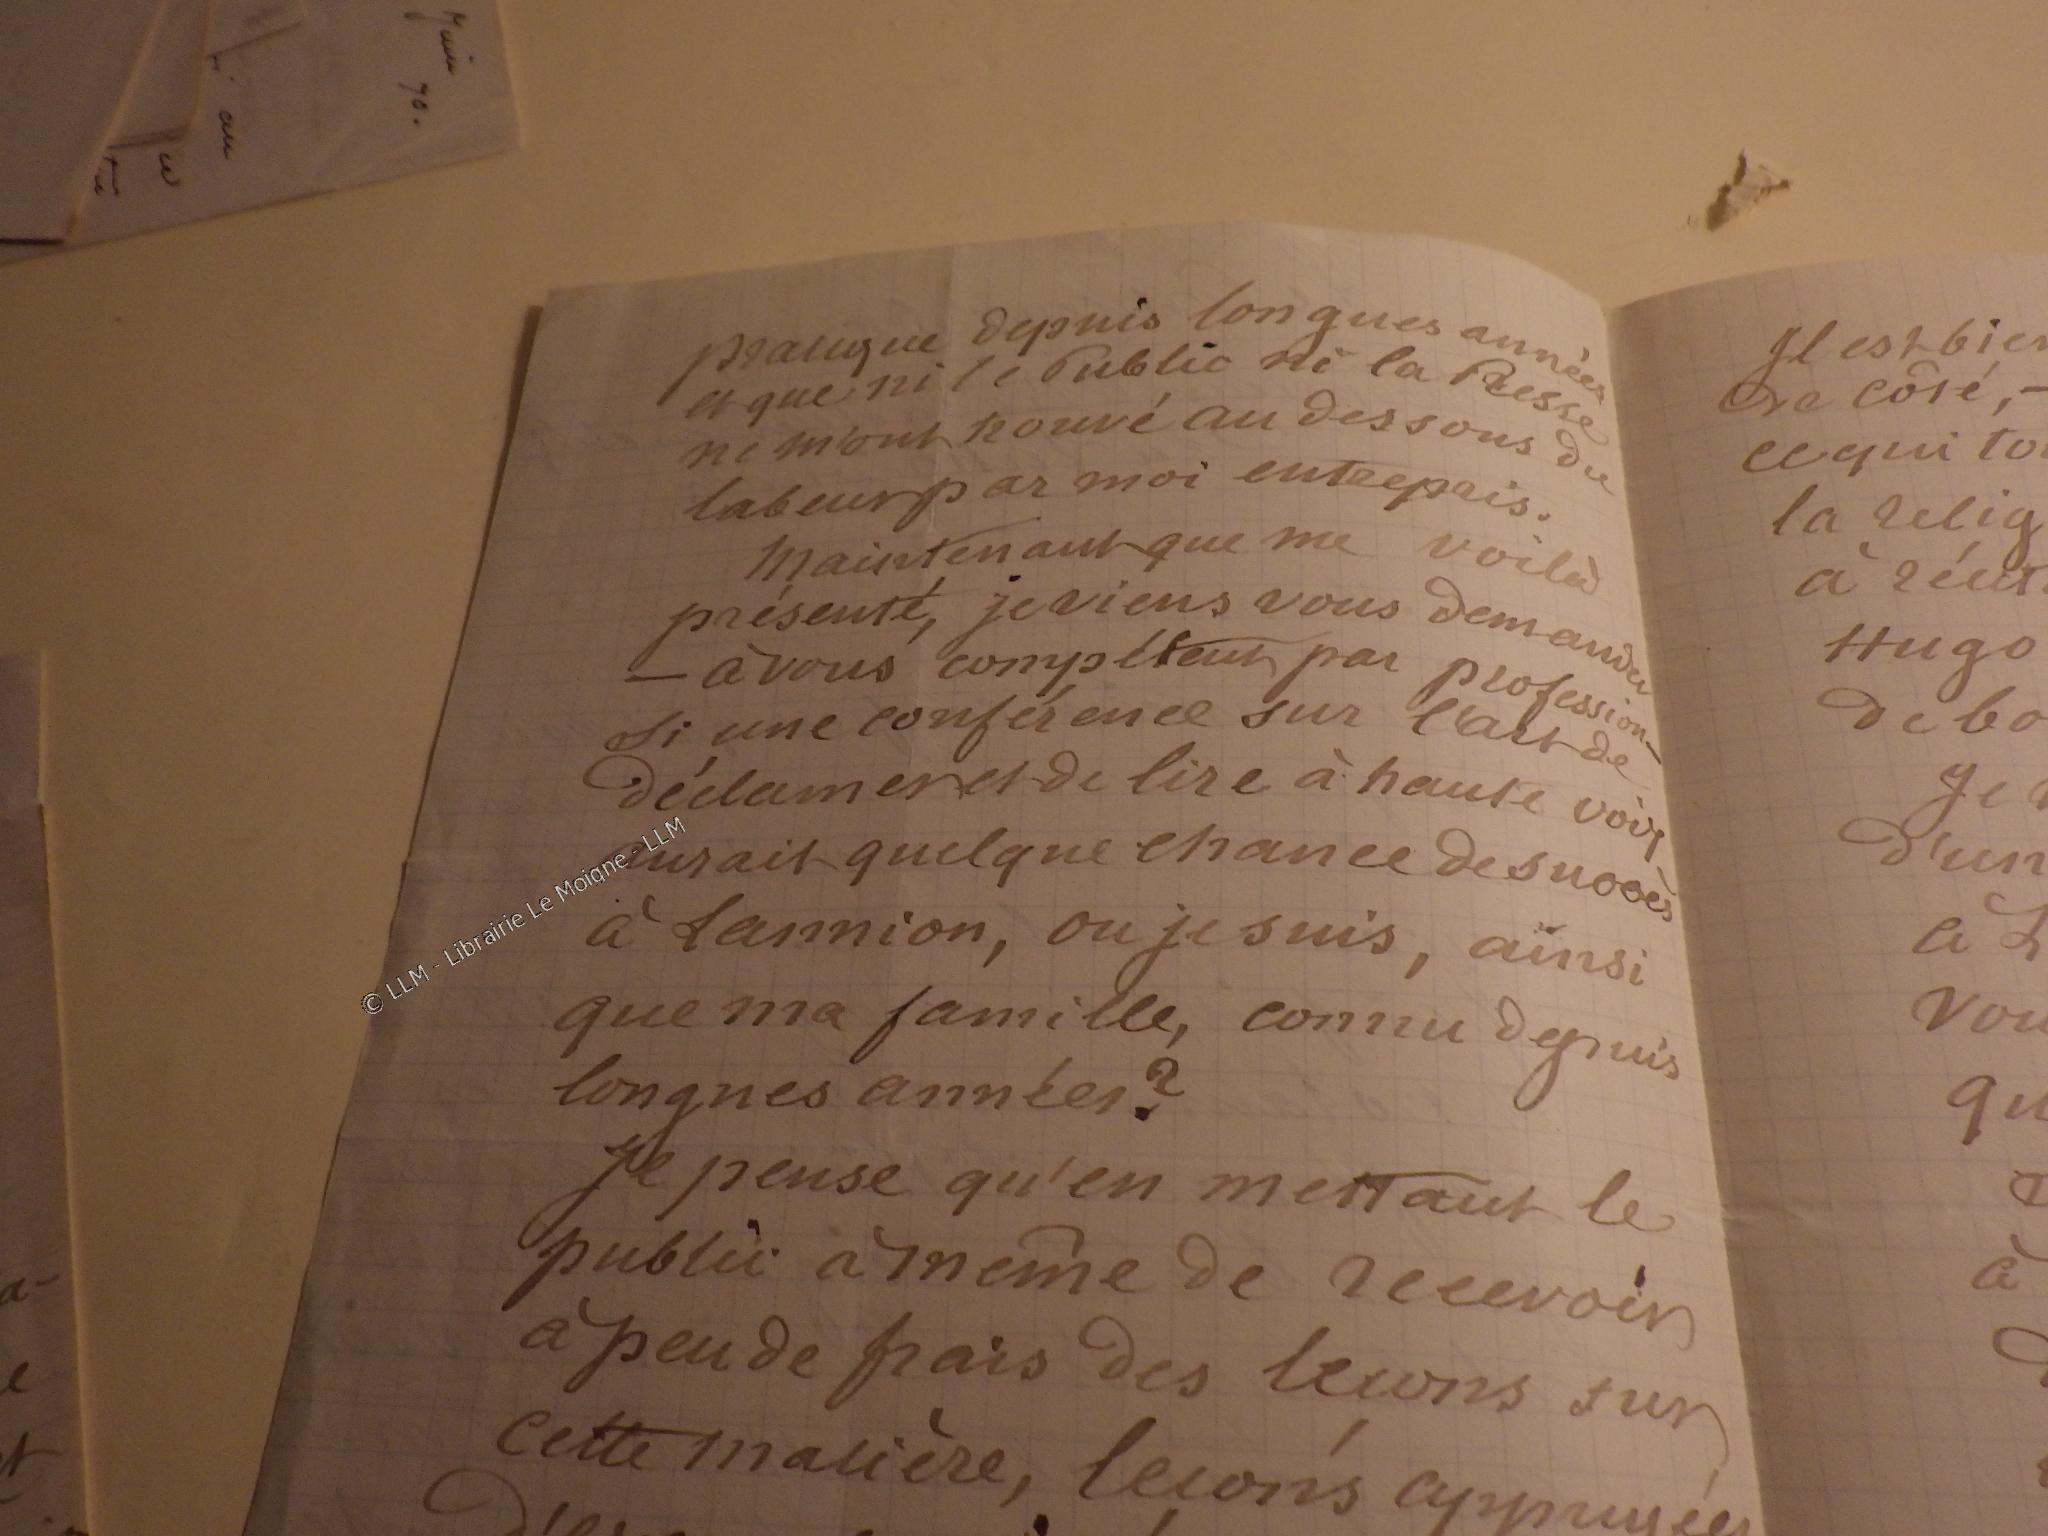 Juin 70.
au
pratique depuis longues années
et que ni le Public ni la Presse
ne m'ont trouvé au dessous du
labeur par moi entrepris.
Maintenant que me voilà
présenté, je viens vous demander
— à vous compétent par profession —
si une conférence sur l'art de
déclamer et de lire à haute voix
aurait quelque chance de succès
à Lannion, ou je suis, ainsi
que ma famille, connu depuis
longues années?
Je pense qu'en mettant le
public à même de recevoir
à peu de frais des leçons sur
cette matière, leçons appuyées
Il est bien
De côté, —
ce qui tou
la relig
à réut
Hugo
de bo
Je
d'un
a L
Vou
qu
à
© LLM - Librairie Le Moigne - LLM